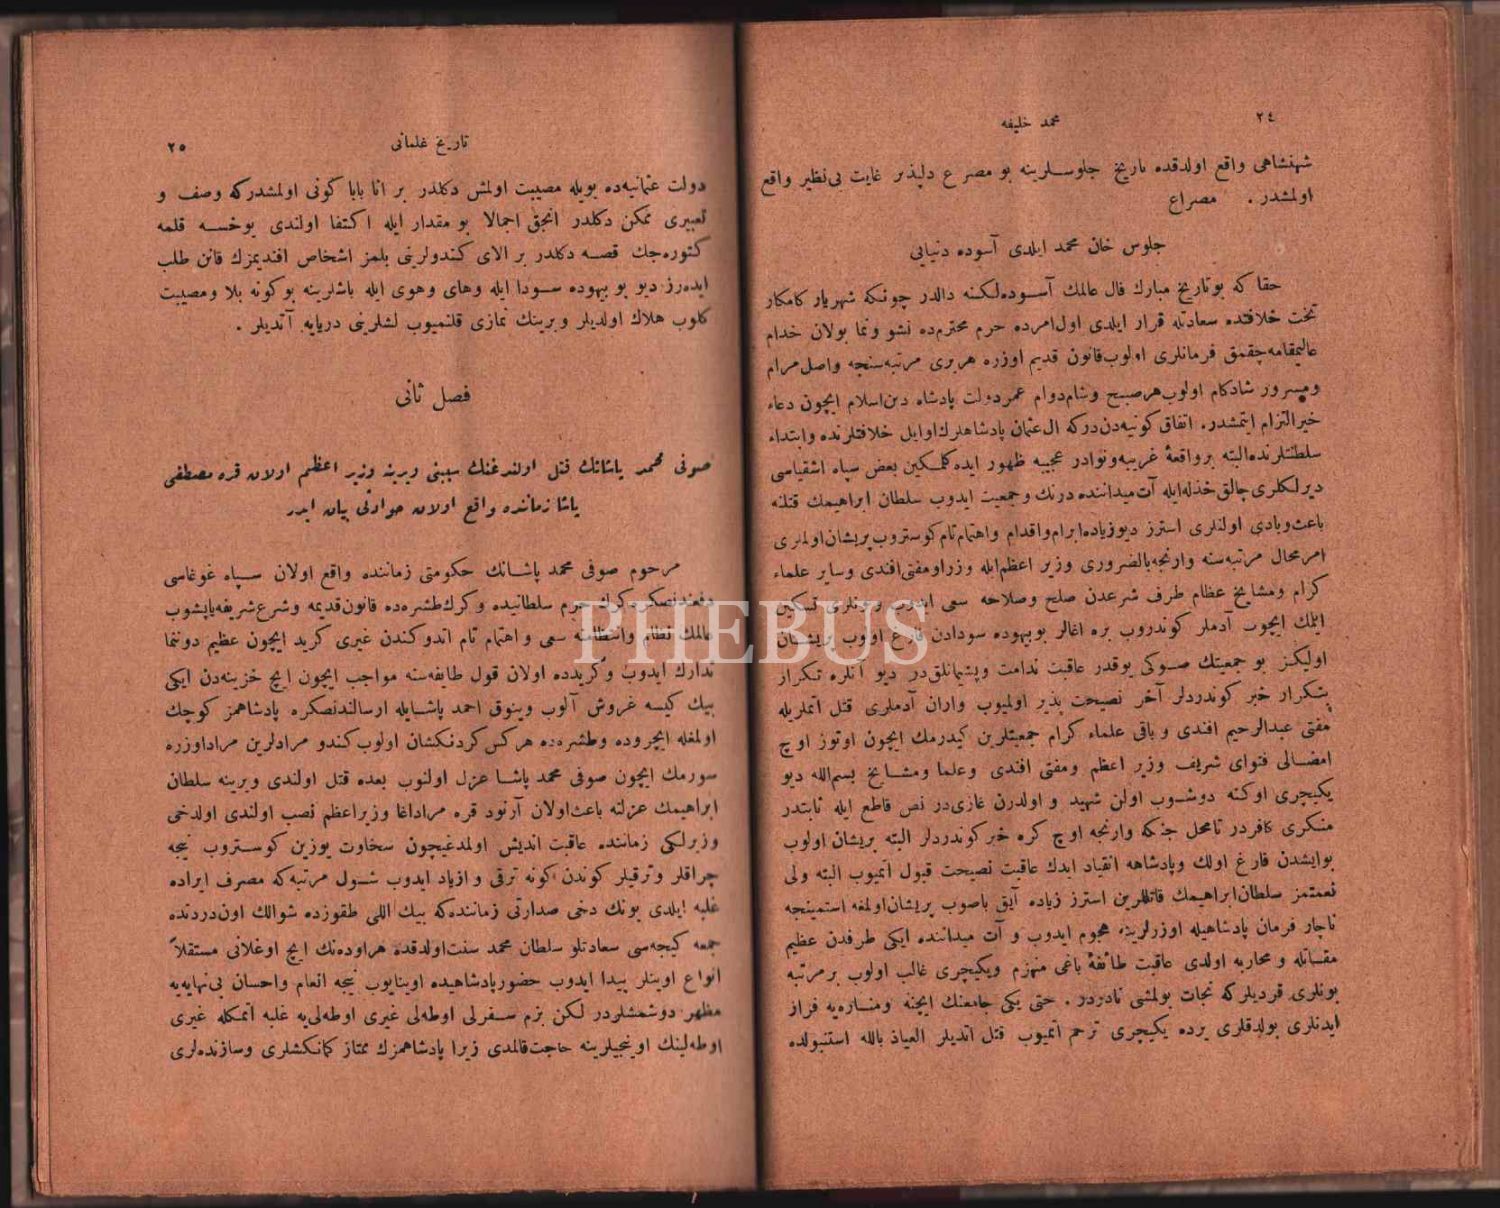 ٢٤
محمد خلیفه
شهنشاهی واقع اولدقده تاریخ جلوسلرینه بو مصرع دلپذیر غایت بی‌نظیر واقع
اولمشدر . مصراع
جلوس خان محمد ایلدی آسوده دنیایی
حقا که بوتاریخ مبارك فال عالمك آسوده‌لکنه دالدر چونکه شهریار کامکار
تخت خلافتده سعادتله قرار ایلدی اول‌امرده حرم محترم‌ده نشو ونما بولان خدام
عالیمقامه‌چقمق فرمانلری اولوب‌قانون قدیم اوزره هربری مرتبه‌سنجه واصل‌مرام
ومسرور شادکام اولوب‌هرصبح وشام‌دوام عمردولت پادشاه دین‌اسلام ایچون دعاء
خیرالتزام ایتمشدر. اتفاق کونیه‌دن‌درکه ال‌عثمان پادشاهلرك‌اوایل خلافتلرنده وابتداء
سلطنتلرنده‌البته برواقعۀ غریبه‌ونوادر عجیبه ظهور ایده‌کلمکین بعض سپاه اشقیاسی
دیرلکلری چالق خذله‌ایله آت‌میداننده درنك وجمعیت ایدوب سلطان ابراهیمك قتلنه
باعث‌وبادی اولنلری استرز دیوزیاده‌ابرام‌واقدام واهتمام‌تام‌کوستروب‌پریشان‌اولملری
امرمحال مرتبه‌سنه وارنجه‌بالضروری وزیر اعظم‌ایله وزراومفتی‌افندی وسایر علماء
کرام ومشایخ عظام طرف شرعدن صلح وصلاحه سعی ایدوب وبونلری تسکین
ایتمك ایچون آدملر کوندروب بره اغالر بوبیهوده سودادن فارغ اولوب پریشان
اولیکز بو جمعیتك صوکی یوقدر عاقبت ندامت وپشیمانلق‌در دیو آنلره تکرار
بتکرار خبر کوندردلر آخر نصیحت پذیر اولمیوب واران آدملری قتل اتملریله
مفتی عبدالرحیم افندی و باقی علماء کرام جمعیتلرین کیدرمك ایچون اوتوز اوچ
امضالی فتوای شریف وزیر اعظم ومفتی افندی وعلما ومشایخ بسم‌الله دیو
یکیچری اوکنه دوشوب اولن شهید و اولدرن غازی‌در نص قاطع ایله ثابتدر
منکری کافردر تامحل جنکه وارنجه اوچ کره خبرکوندردلر البته پریشان اولوب
بوایشدن فارغ اولك وپادشاهه انقیاد ایدك عاقبت نصیحت قبول اتمیوب البته ولی
نعمتمز سلطان‌ابراهیمك قاتللرین استرز زیاده آیق باصوب پریشان‌اولمغه استمینجه
ناچار فرمان پادشاهیله اوزرلرینه هجوم ایدوب و آت میداننده ایکی طرفدن عظیم
مقاتله و محاربه اولدی عاقبت طائفۀ باغی منهزم ویکیچری غالب اولوب برمرتبه
بونلری قردیلرکه نجات بولمشی نادردر . حتی یکی جامعنك ایچنه ومناره‌یه فراز
ایدنلری بولدقلری یرده یکیچری ترحم اتمیوب قتل اتدیلر العیاذ بالله استنبولده
تاریخ غلمانی
٢٥
دولت عثمانیه‌ده بویله مصیبت اولمش دکلدر بر انا بابا کونی اولمشدرکه وصف و
تعبیری ممکن دکلدر انجق اجمالا بو مقدار ایله اکتفا اولندی یوخسه قلمه
کتوره‌جك قصه دکلدر بر الای کندولرینی بلمز اشخاص افندیمزك قانن طلب
ایده‌رز دیو بو بیهوده سودا ایله وهای وهوی ایله باشلرینه بوکونه بلا ومصیبت
کلوب هلاك اولدیلر وبرینك نمازی قلنمیوب لشلرینی دریایه آتدیلر .
فصل ثانی
صوفی محمد پاشانك قتل اولندغنك سببنی ویرینه وزیر اعظم اولان قره مصطفی
پاشا زماننده واقع اولان حوادثی بیان ایدر
مرحوم صوفی محمد پاشانك حکومتی زماننده واقع اولان سپاه غوغاسی
دفعندنصکره‌کرك حرم سلطانیده وکرك‌طشره‌ده قانون‌قدیمه وشرع‌شریفه‌یاپشوب
عالمك نظام وانتظامنه سعی و اهتمام تام اندوکندن غیری کرید ایچون عظیم دونما
تدارك ایدوب وکریدده اولان قول طایفه‌سنه مواجب ایچون ایچ خزینه‌دن ایکی
بیك کیسه غروش آلوب وینوق احمد پاشایله ارسالندنصکره پادشاهمز کوچك
اولمغله ایچروده وطشره‌ده هرکس‌کردنکشان اولوب‌کندو مرادلرین مراداوزره
سورمك ایچون صوفی محمد پاشا عزل اولنوب بعده قتل اولندی ویرینه سلطان
ابراهیمك عزلنه باعث‌اولان آرنود قره مراداغا وزیراعظم نصب اولندی اولدخی
وزیرلکی زماننده عاقبت اندیش اولمدغیچون سخاوت یوزین کوستروب نیجه
چراقلر وترقیلر کوندن کونه ترقی وازیاد ایدوب شول مرتبه‌که مصرف ایراده
غلبه ایلدی بونك دخی صدارتی زماننده‌که بیك اللی طقوزده شوالك اون‌دردنده
جمعه کیجه‌سی سعادتلو سلطان محمد سنت‌اولدقده هراوده‌نك ایچ اوغلانی مستقلاً
انواع اوینلر پیدا ایدوب حضورپادشاهیده اوینایوب نیجه انعام واحسان بی‌نهایه‌یه
مظهر دوشمشلردر لکن بزم سفرلی اوطه‌لی غیری اوطه‌لی‌یه غلبه اتمکله غیری
اوطه‌لینك اوینجیلرینه حاجت‌قالمدی زیرا پادشاهمزك ممتاز کمانکشلری وسازنده‌لری
PHEBUS